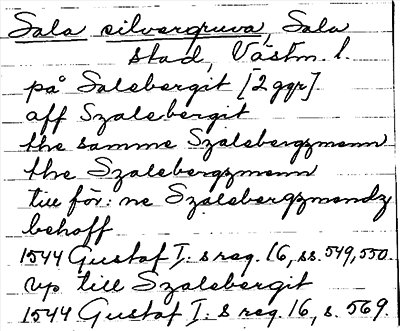 Sala silvergruva, Sala
stad, Västm. l.
på Salsbergit [2 ggr].
aff Szalsbergit
the samme Szalsbergzmenn
the Szalsbergzmenn
till för: ne Szalsbergzmendz
behoff
1544 Gustaf I. s reg. 16, ss. 549, 550.
vp till Szalsbergit
1544 Gustaf I. s reg. 16, s. 569.